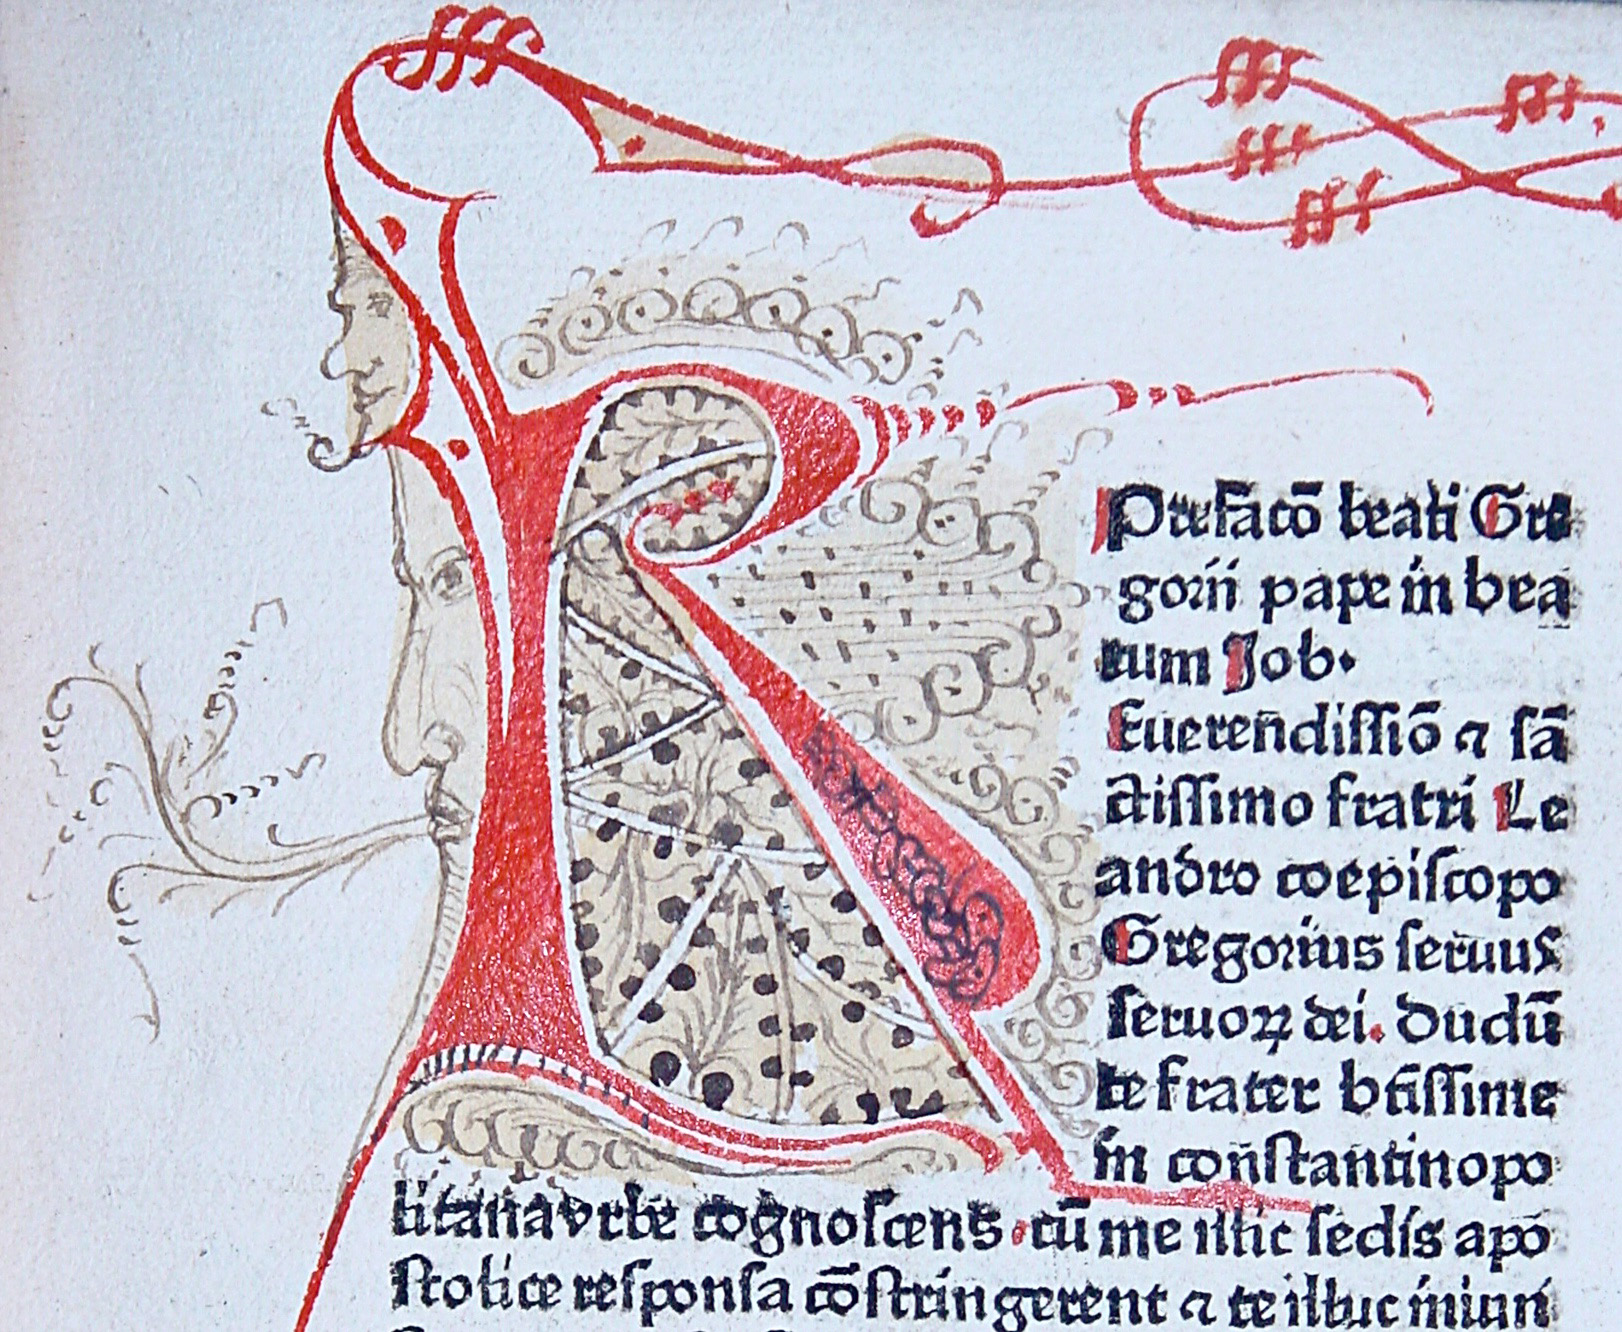 Prefacō beati Gre
gorii pape in bea
tum Job.
Euereñdissiō ⁊ sā
ctissimo fratri Le
andro coepiscopo
Gregorius seruus
seruoꝝ dei. Dudū
te frater btissime
in coñstantinopo
litana vrbe cognoscens. cū me illic sedis apo
stolice responsa cōstringerent ⁊ te illuc iniun